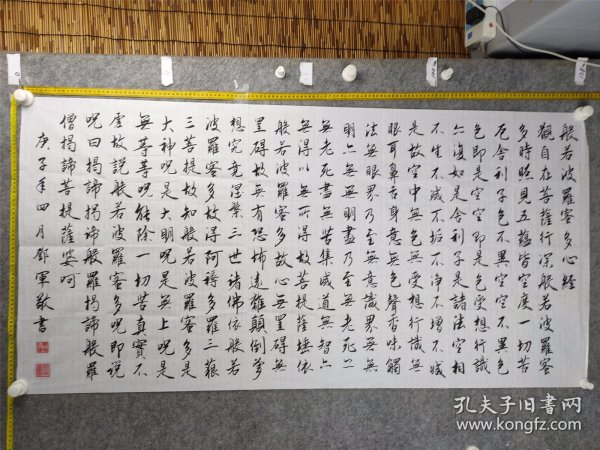 般若波羅蜜多心經
觀自在菩薩行深般若波羅蜜
多時照見五蘊皆空度一切苦
厄舍利子色不異空空不異色
色即是空空即是色受想行識
亦復如是舍利子是諸法空相
不生不滅不垢不淨不增不減
是故空中無色無受想行識無
眼耳鼻舌身意無色聲香味觸
法無眼界乃至無意識界無無
明亦無無明盡乃至無老死亦
無老死盡無苦集滅道無智亦
無得以無所得故菩提薩埵依
般若波羅蜜多故心無罣礙無
罣礙故無有恐怖遠離顛倒夢
想究竟涅槃三世諸佛依般若
波羅蜜多故得阿耨多羅三藐
三菩提故知般若波羅蜜多是
大神呪是大明呪是無上呪是
無等等呪能除一切苦真實不
虛故說般若波羅蜜多呪即說
呪曰揭諦揭諦般羅揭諦般羅
僧揭諦菩提薩婆訶
庚子年四月鄧軍敬書
孔夫子旧書网
www.kongfz.com